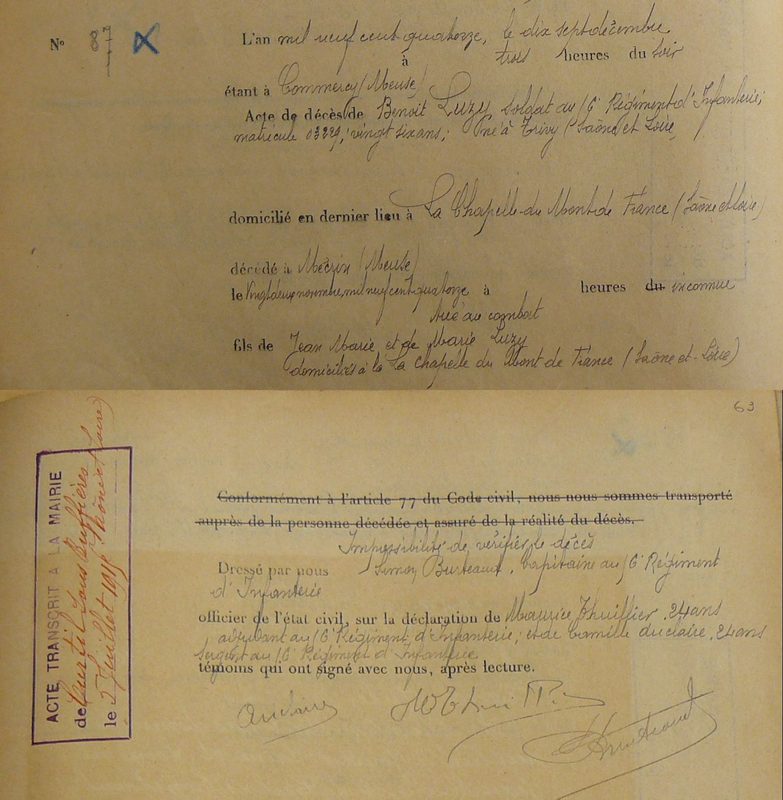 N° 87 X
L'an mil neuf cent quatorze, le dix sept décembre
à trois heures du soir
étant à Commercy (Meuse)
Acte de décès de Benoit Luzy, soldat au 16e Régiment d'Infanterie;
matricule 03220; vingt six ans; né à Trivy (Saône et Loire
domicilié en dernier lieu à La Chapelle-du Mont de France (Saône et Loire)
décédé à Mécrin (Meuse)
le vingt deux novembre mil neuf cent quatorze à heures du inconnue
tué au combat
fils de Jean Marie et de Marie Luzy
domiciliés à la La Chapelle du Mont de France (Saône-et-Loire)
63
Conformément à l'article 77 du Code civil, nous nous sommes transporté
auprès de la personne décédée et assuré de la réalité du décès.
Impossibilité de vérifier le décès
Dressé par nous Simon Burteaux, capitaine au 16e Régiment
d'Infanterie
officier de l'état civil, sur la déclaration de Maurice Thuillier, 24 ans
adjudant au 16e Régiment d'Infanterie; et de Camille Auclaire, 24 ans
sergent au 16e Régiment d'Infanterie
témoins qui ont signé avec nous, après lecture.
Auclaire
ACTE TRANSCRIT A LA MAIRIE
de Curtil sous Buffières
le 5 Juillet 1915 (Saône et Loire)